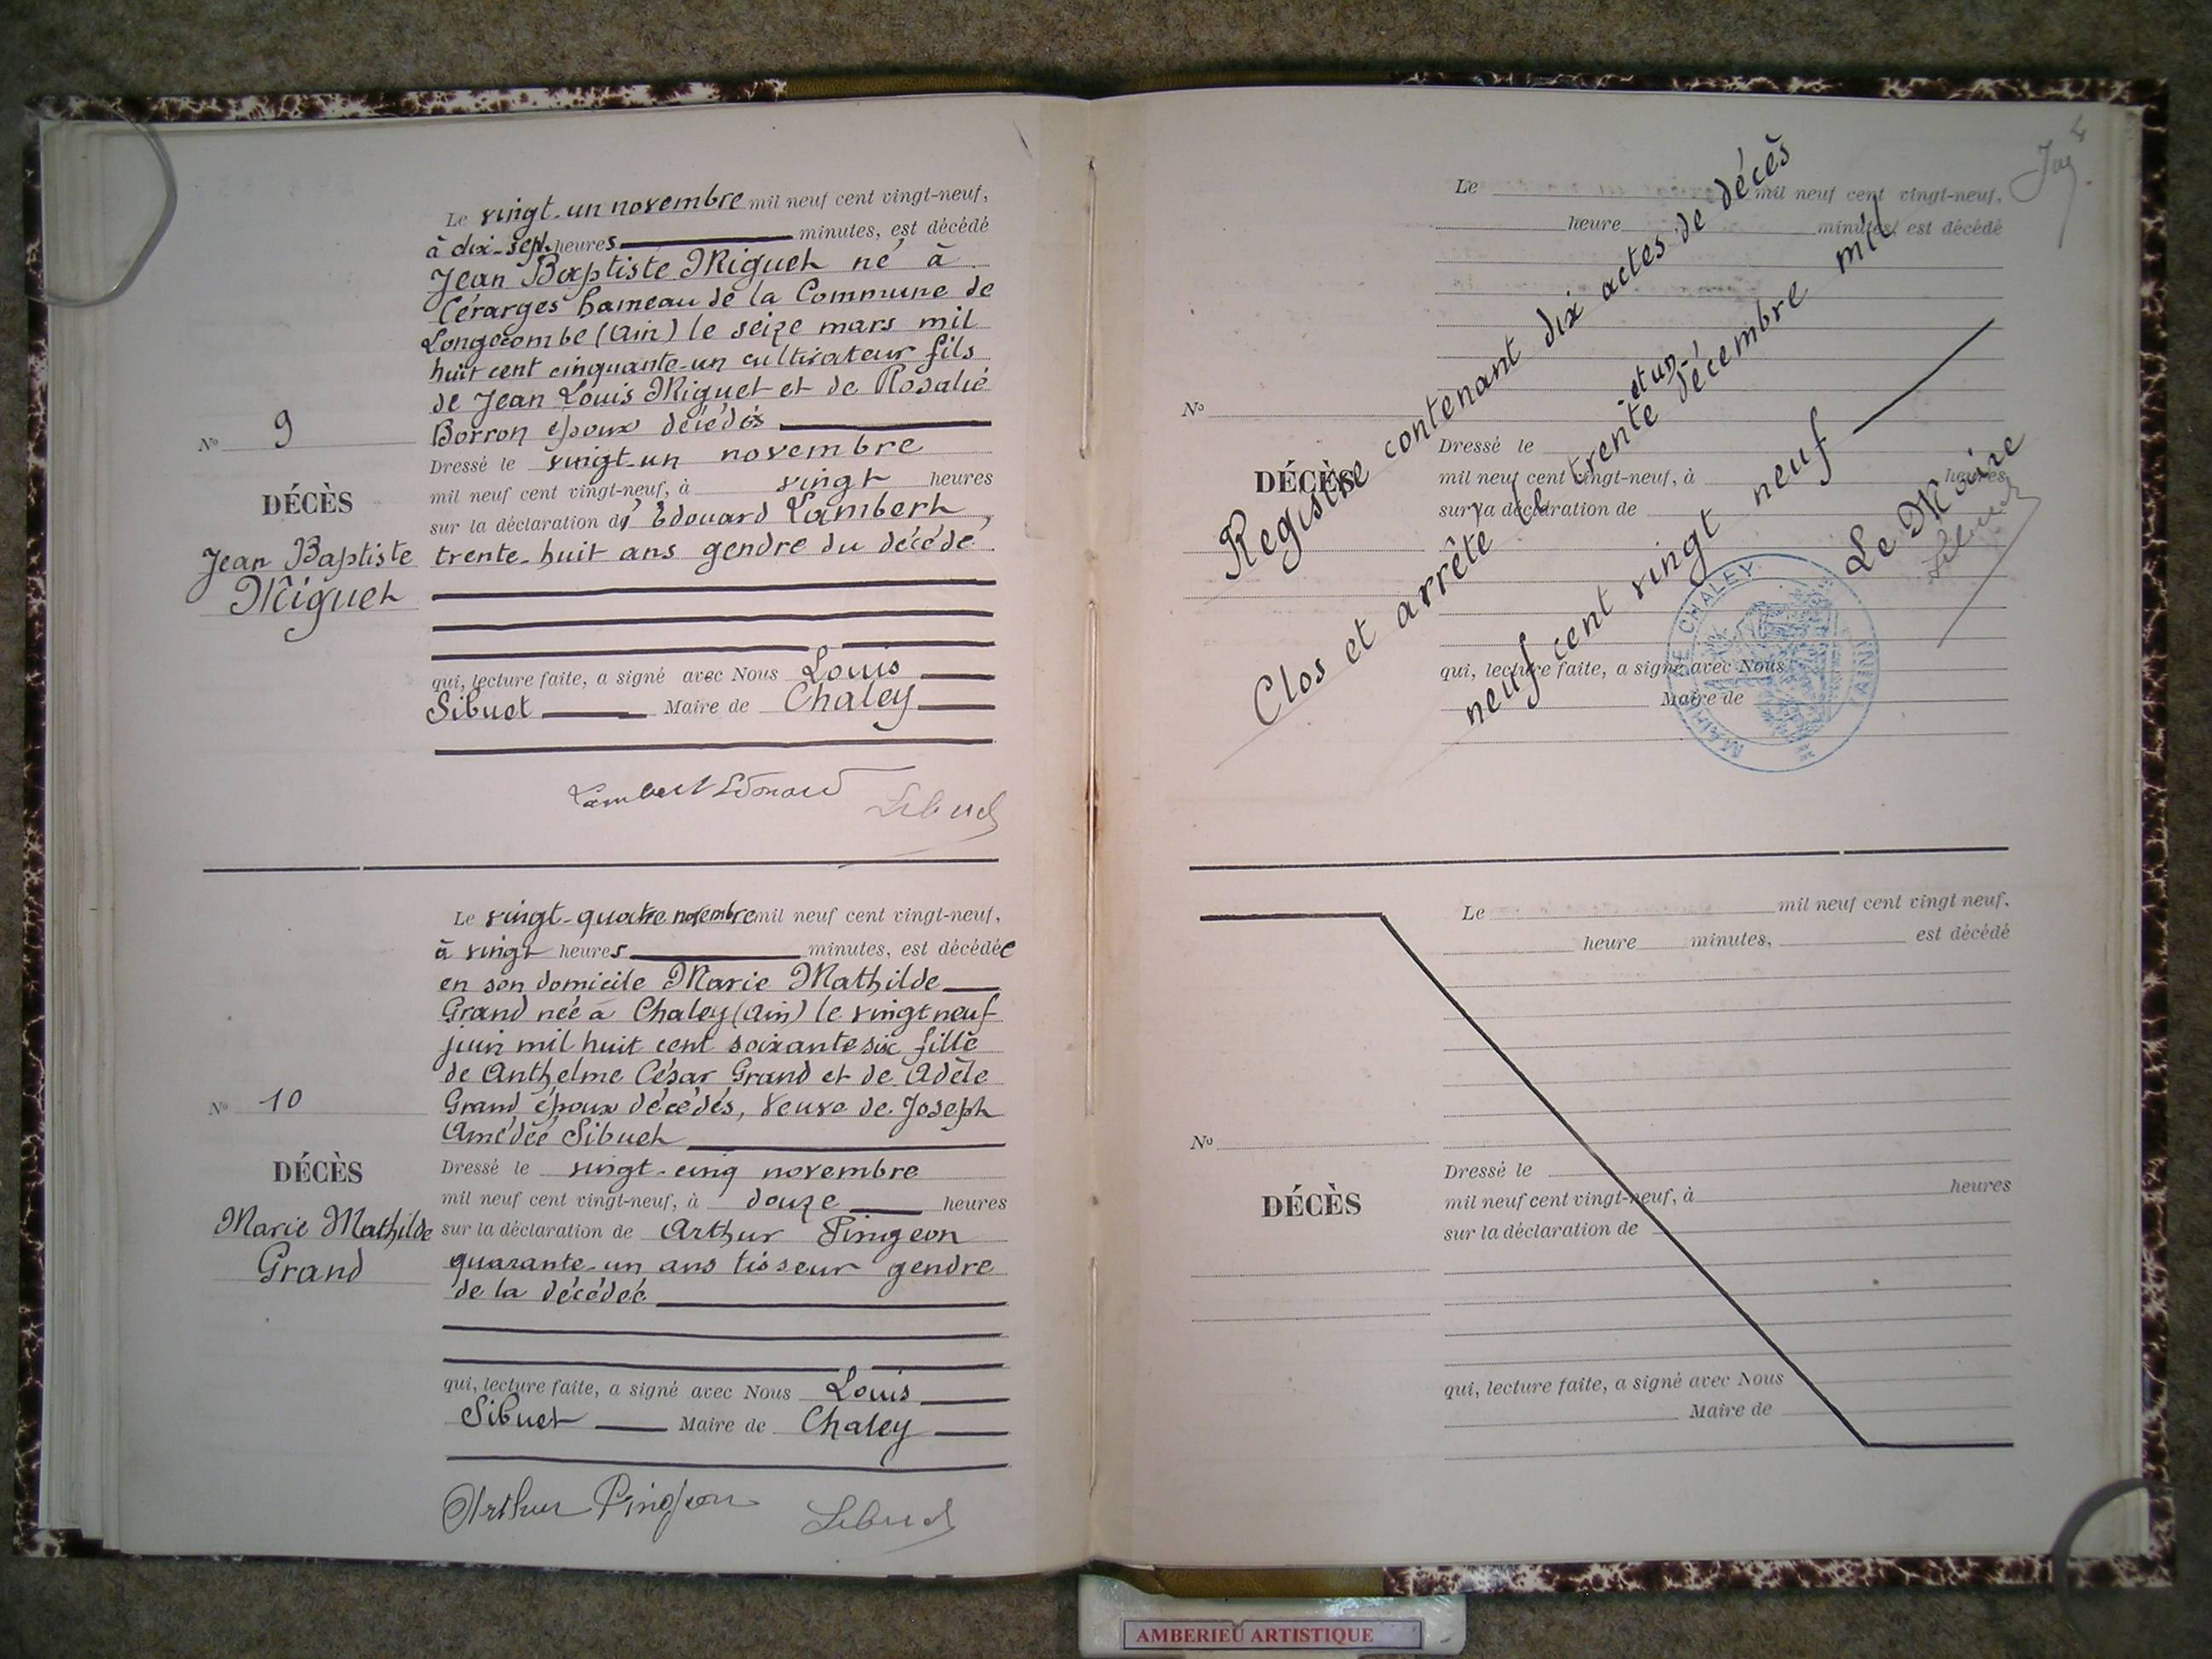 Le vingt-un novembre mil neuf cent vingt-neuf,
à dix-sept heures minutes, est décédé
Jean Baptiste Miguet né à
Cérarges hameau de la Commune de
Longecombe (Ain) le seize mars mil
huit cent cinquante-un cultivateur fils
de Jean Louis Miguet et de Rosalie
Borron époux décédés
Nº 9
Dressé le vingt-un novembre
mil neuf cent vingt-neuf, à vingt heures
DÉCÈS
sur la déclaration d' Edouard Lambert,
Jean Baptiste
Miguet
trente-huit ans gendre du décédé
qui, lecture faite, a signé avec Nous Louis
Sibuet Maire de Chaley
Lambert Edouard
Sibuet
Le vingt-quatre novembre mil neuf cent vingt-neuf,
à vingt heures minutes, est décédée
en son domicile Marie Mathilde
Grand née à Chaley (Ain) le vingt neuf
juin mil huit cent soixante six fille
de Anthelme César Grand et de Adèle
Grand époux décédés, Veuve de Joseph
Amédée Sibuet
Nº 10
Dressé le vingt-cinq novembre
mil neuf cent vingt-neuf, à douze heures
DÉCÈS
Marie Mathilde
Grand
sur la déclaration de Arthur Pingeon
quarante-un ans tisseur gendre
de la décédée
qui, lecture faite, a signé avec Nous Louis
Sibuet Maire de Chaley
Arthur Pingeon
Sibuet
4
Le mil neuf cent vingt-neuf,
heure minutes, est décédé
Nº
Dressé le
mil neuf cent vingt-neuf, à heures
DÉCÈS
sur la déclaration de
qui, lecture faite, a signé avec Nous
Maire de
Registre contenant dix actes de décès
Clos et arrête le trente et un décembre mil
neuf cent vingt neuf
Le Maire
Sibuet
MAIRIE CHALEY
AIN
Le mil neuf cent vingt neuf,
heure minutes, est décédé
Nº
Dressé le
mil neuf cent vingt-neuf, à heures
DÉCÈS
sur la déclaration de
qui, lecture faite, a signé avec Nous
Maire de
AMBERIEU ARTISTIQUE